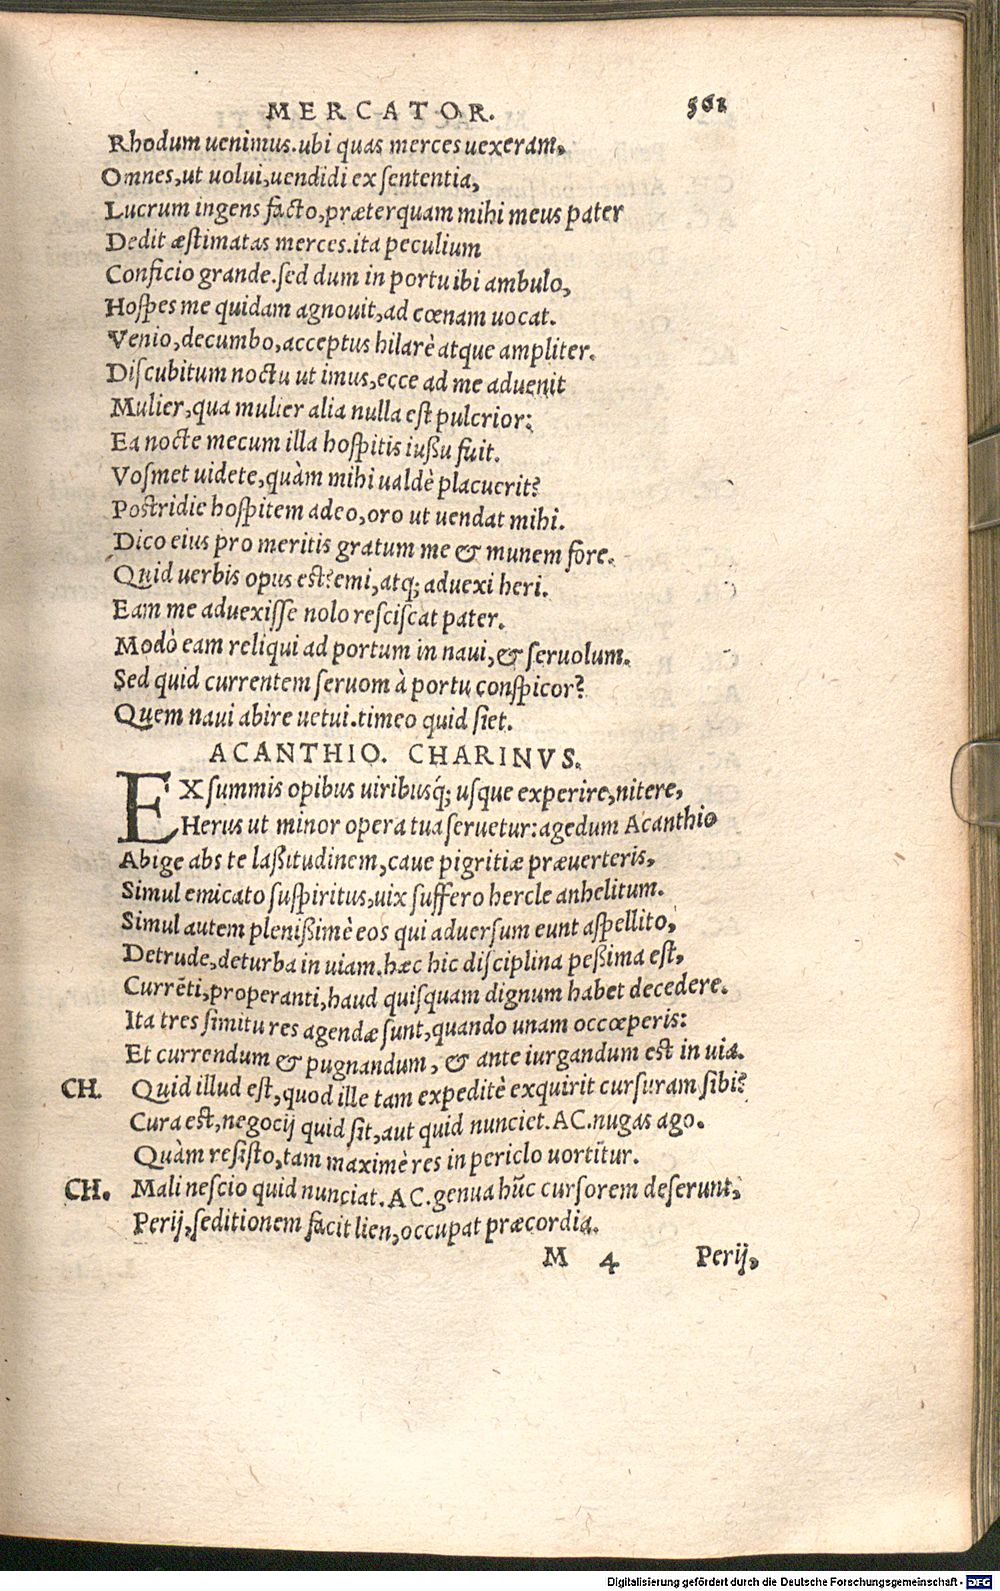 MERCATOR. 561
Rhodum uenimus. ubi quas merces uexeram,
Omnes, ut uolui, uendidi ex sententia,
Lucrum ingens facto, præterquam mihi meus pater
Dedit æstimatas merces. ita peculium
Conficio grande. sed dum in portu ibi ambulo,
Hospes me quidam agnouit, ad cœnam uocat.
Venio, decumbo, acceptus hilarè atque ampliter.
Discubitum noctu ut imus, ecce ad me aduenit
Mulier, qua mulier alia nulla est pulcrior:
Ea nocte mecum illa hospitis iußu fuit.
Vosmet uidete, quàm mihi ualdè placuerit?
Postridie hospitem adeo, oro ut uendat mihi.
Dico eius pro meritis gratum me & munem fore.
Quid uerbis opus est? emi, atq; aduexi heri.
Eam me aduexisse nolo resciscat pater.
Modò eam reliqui ad portum in naui, & seruolum.
Sed quid currentem seruom à portu conspicor?
Quem naui abire uetui. timeo quid siet.
ACANTHIO. CHARINVS.
EX summis opibus uiribusq́; usque experire, nitere,
Herus ut minor opera tua seruetur: agedum Acanthio
Abige abs te laßitudinem, caue pigritiæ præuerteris.
Simul emicato suspiritus, uix suffero hercle anhelitum.
Simul autem plenißimè eos qui aduersum eunt aspellito,
Detrude, deturba in uiam. hæc hic disciplina peßima est,
Currẽti, properanti, haud quisquam dignum habet decedere.
Ita tres simitu res agendæ sunt, quando unam occœperis:
Et currendum & pugnandum, & ante iurgandum est in uia.
CH. Quid illud est, quod ille tam expeditè exquirit cursuram sibi?
Cura est, negocij quid sit, aut quid nunciet. AC. nugas ago.
Quàm resisto, tam maximè res in periclo uortitur.
CH. Mali nescio quid nunciat. AC. genua hũc cursorem deserunt,
Perij, seditionem facit lien, occupat præcordia.
M 4 Perij,
Digitalisierung gefördert durch die Deutsche Forschungsgemeinschaft - DFG